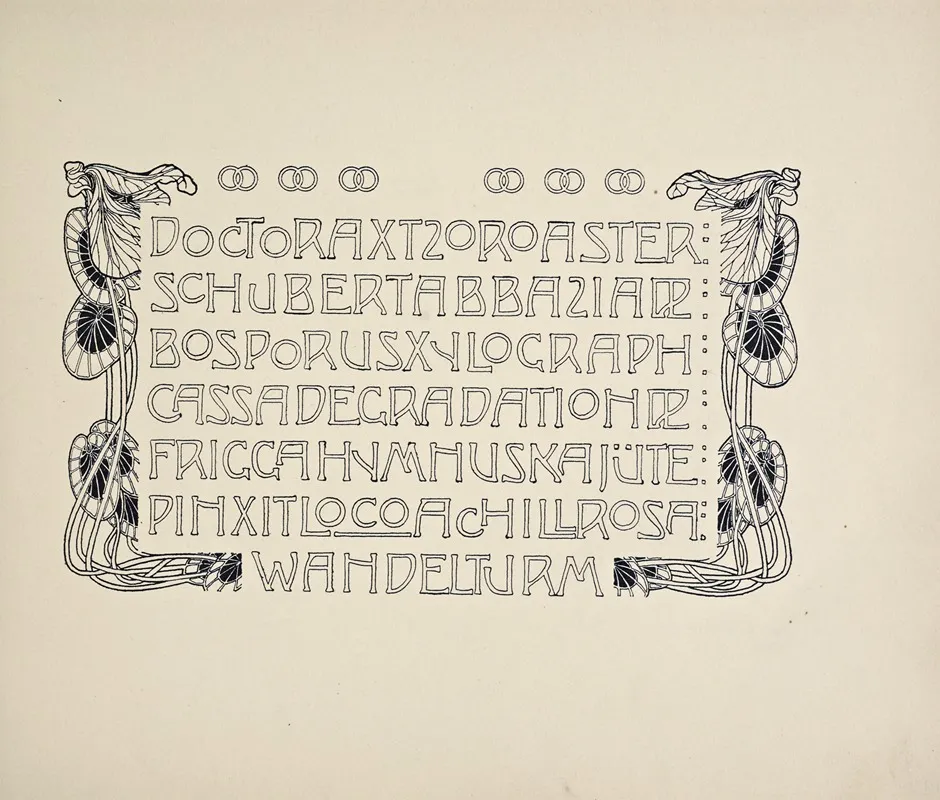 DOCTORAXTZOROASTER:
SCHUBERTABBAZIA :
BOSPORUSXYLOGRAPH :
CASSADEGRADATION :
FRIGGAHYMNUSKAJÜTE:
PINXITLOCOACHILLROSA:
WANDELTURM